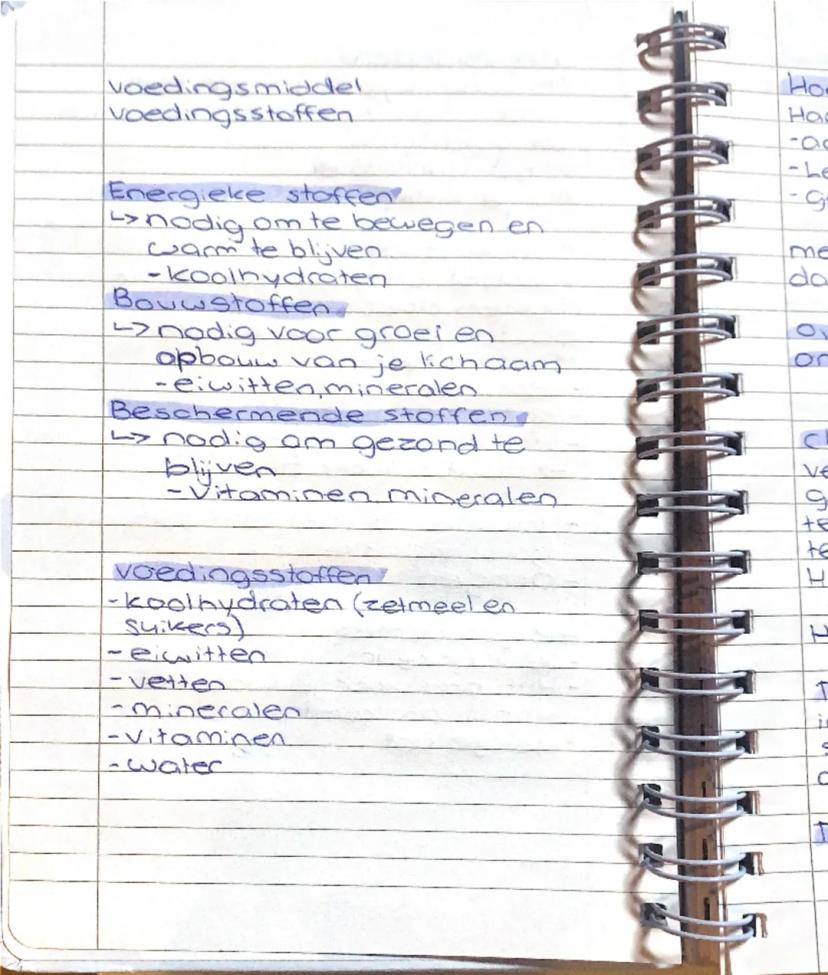 voedingsmiddel
voedingsstoffen
Energieke stoffen
↳ nodig om te bewegen en
warm te blijven
- koolhydraten
Bouwstoffen
↳ nodig voor groei en
opbouw van je lichaam
- eiwitten, mineralen
Beschermende stoffen
↳ nodig am gezond te
blijven
- vitaminen mineralen
voedingsstoffen
- koolhydraten (zetmeel en
suikers)
- eiwitten
- vetten
- mineralen
- vitaminen
- water